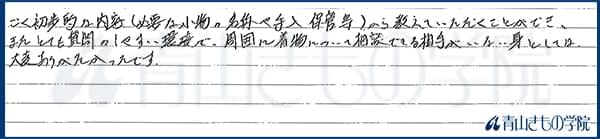 ごく初歩的な内容(必要な小物の名称や手入、保管等)から教えていただくことができ、
またとても質問のしやすい環境で、周囲に着物について相談できる相手がいない身としては、
大変ありがたかったです。
青山きもの学院
青山きもの学院